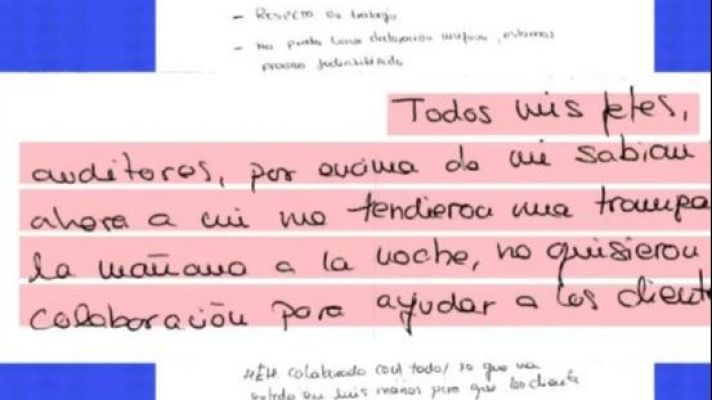 - Respeto su trabajo
- No puedo hacer declaración
proceso judicializado
Todos mis jefes,
auditores, por encima de mi sabian
ahora a mi me tendieron una trampa
la mañana a la noche, no quisieron
colaboración para ayudar a los client
HEM colaborado con todo/ lo que
manos para que los clients